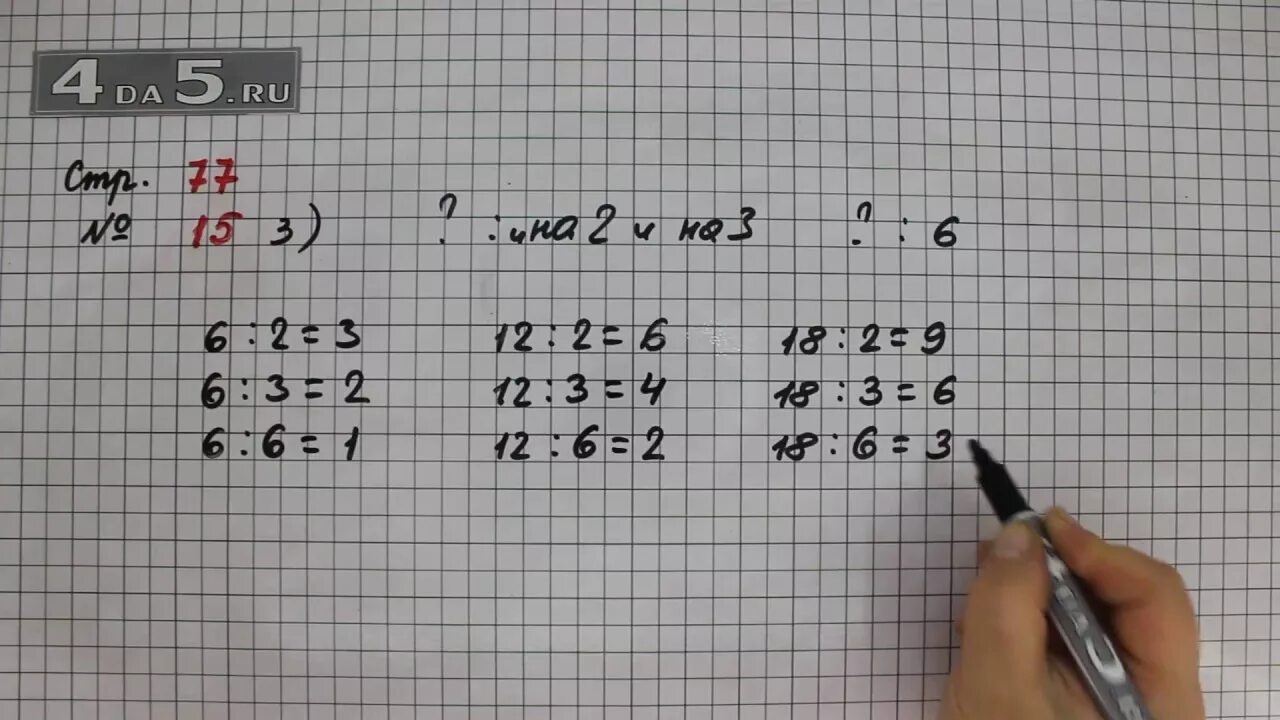 4DA5.RU
Стр. 77
№ 15 3) ? : и на 2 и на 3 ? : 6
6 : 2 = 3 12 : 2 = 6 18 : 2 = 9
6 : 3 = 2 12 : 3 = 4 18 : 3 = 6
6 : 6 = 1 12 : 6 = 2 18 : 6 = 3